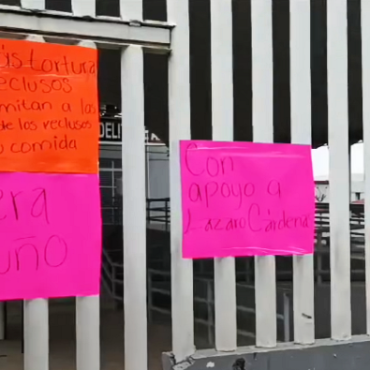 ás tortura
reclusos
mitan a los
de los reclusos
comida
era
uño
DELI
Con
apoyo a
Lazaro Cárdena